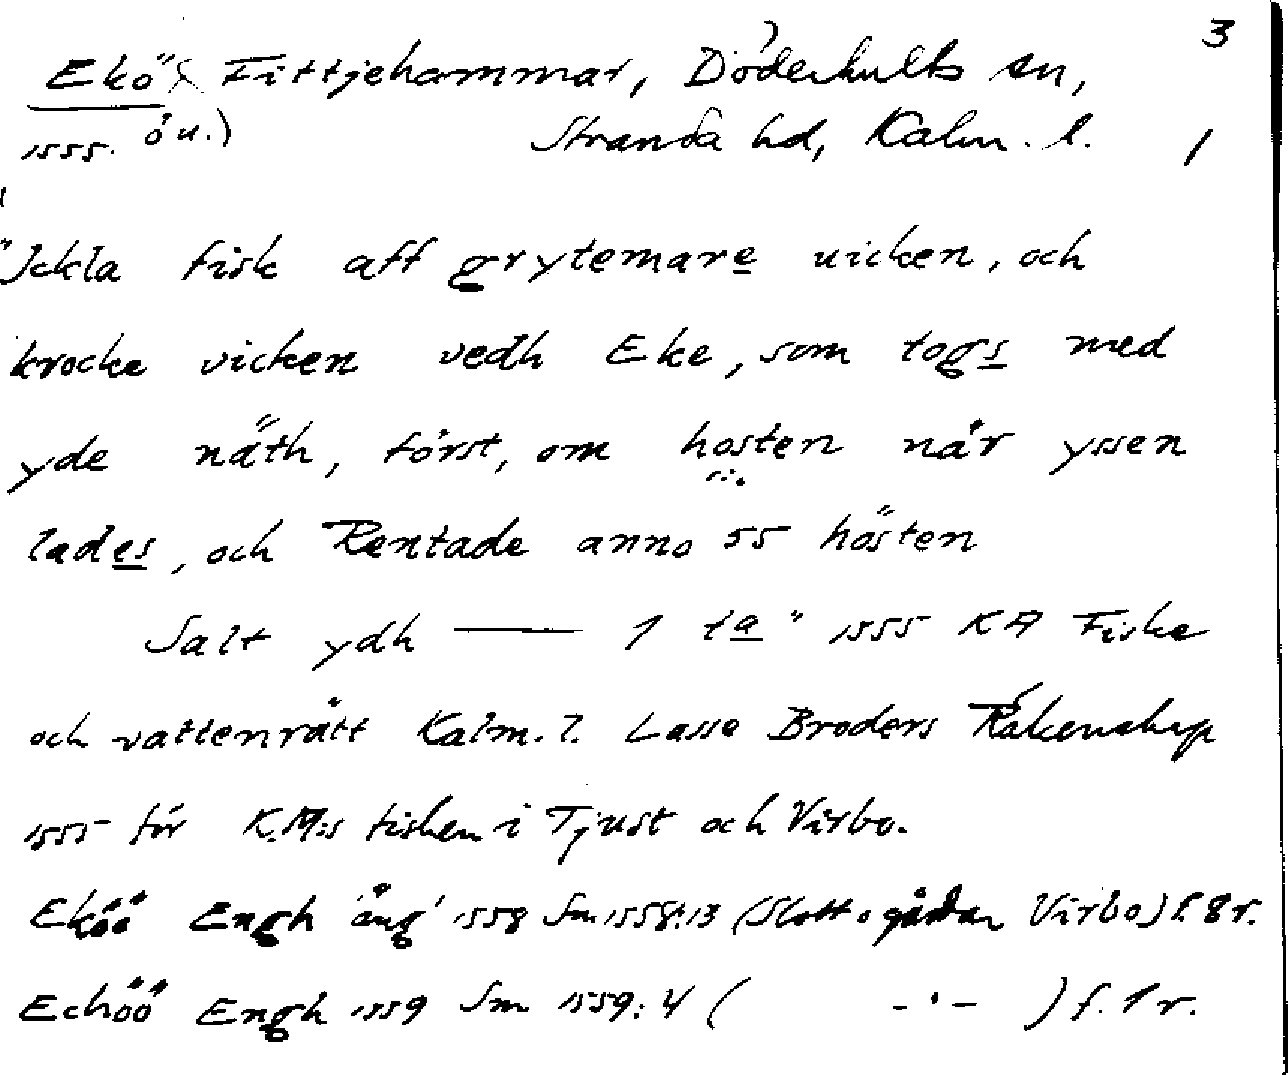 3
Ekö Fittjehammar, Döderhults sn,
1555. ö u.) Stranda hd, Kalm. l. 1
"Jckla fisk aff grytemare uicken, och
krocke vicken vedh Eke, som togs med
yde näth, först, om hosten når yssen
lades, och Rentade anno 55 hösten
Salt ydh — 1 ta" 1555 KA Fiske
och vattenrätt Kalm. l. Lasse Broders Räkenskap
1555 för K.M:s fisken i Tjust och Virbo.
Eköö Engh 'äng' 1558 Sm 1558:13 (Slott o gårdar Virbo) f. 8 r.
Echöö Engh 1559 Sm 1559:4 ( -"- ) f. 1 r.